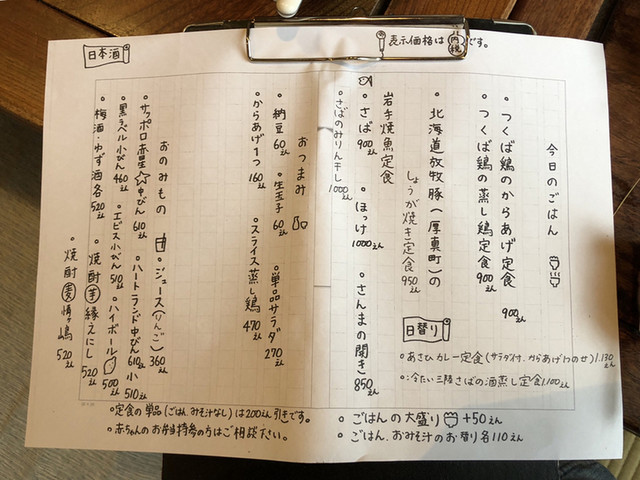 表示価格は内税です。
今日のごはん
・つくば鶏のからあげ定食 900えん
・つくば鶏の蒸し鶏定食 900えん
・北海道放牧豚(厚真町)の
しょうが焼き定食 950えん
岩手焼魚定食
・さば 900えん ・ほっけ 1000えん ・さんまの開き 850えん
・さばのみりん干し 1000えん
日替り
・あさひカレー定食(サラダ付、からあげ1つのせ) 1,130えん
・冷たい三陸さばの酒蒸し定食 1,100えん
おつまみ
・納豆 60えん ・生玉子 60えん ・単品サラダ 270えん
・からあげ1つ 160えん ・スライス蒸し鶏 470えん
おのみもの
・ジュース(りんご) 360えん
・サッポロ赤星☆中びん 610えん ・ハートランド中びん 610えん 小 510えん
・黒ラベル小びん 460えん ・エビス小びん 510えん ・ハイボール 500えん
・梅酒・ゆず酒各 520えん ・焼酎 芋 縁えにし 520えん
・焼酎 麦 情け嶋 520えん
日本酒
・定食の単品(ごはん、みそ汁なし)は200えん引きです。
・赤ちゃんのお弁当持参の方はご相談ください。
・ごはんの大盛り +50えん
・ごはん、おみそ汁のお替り各110えん